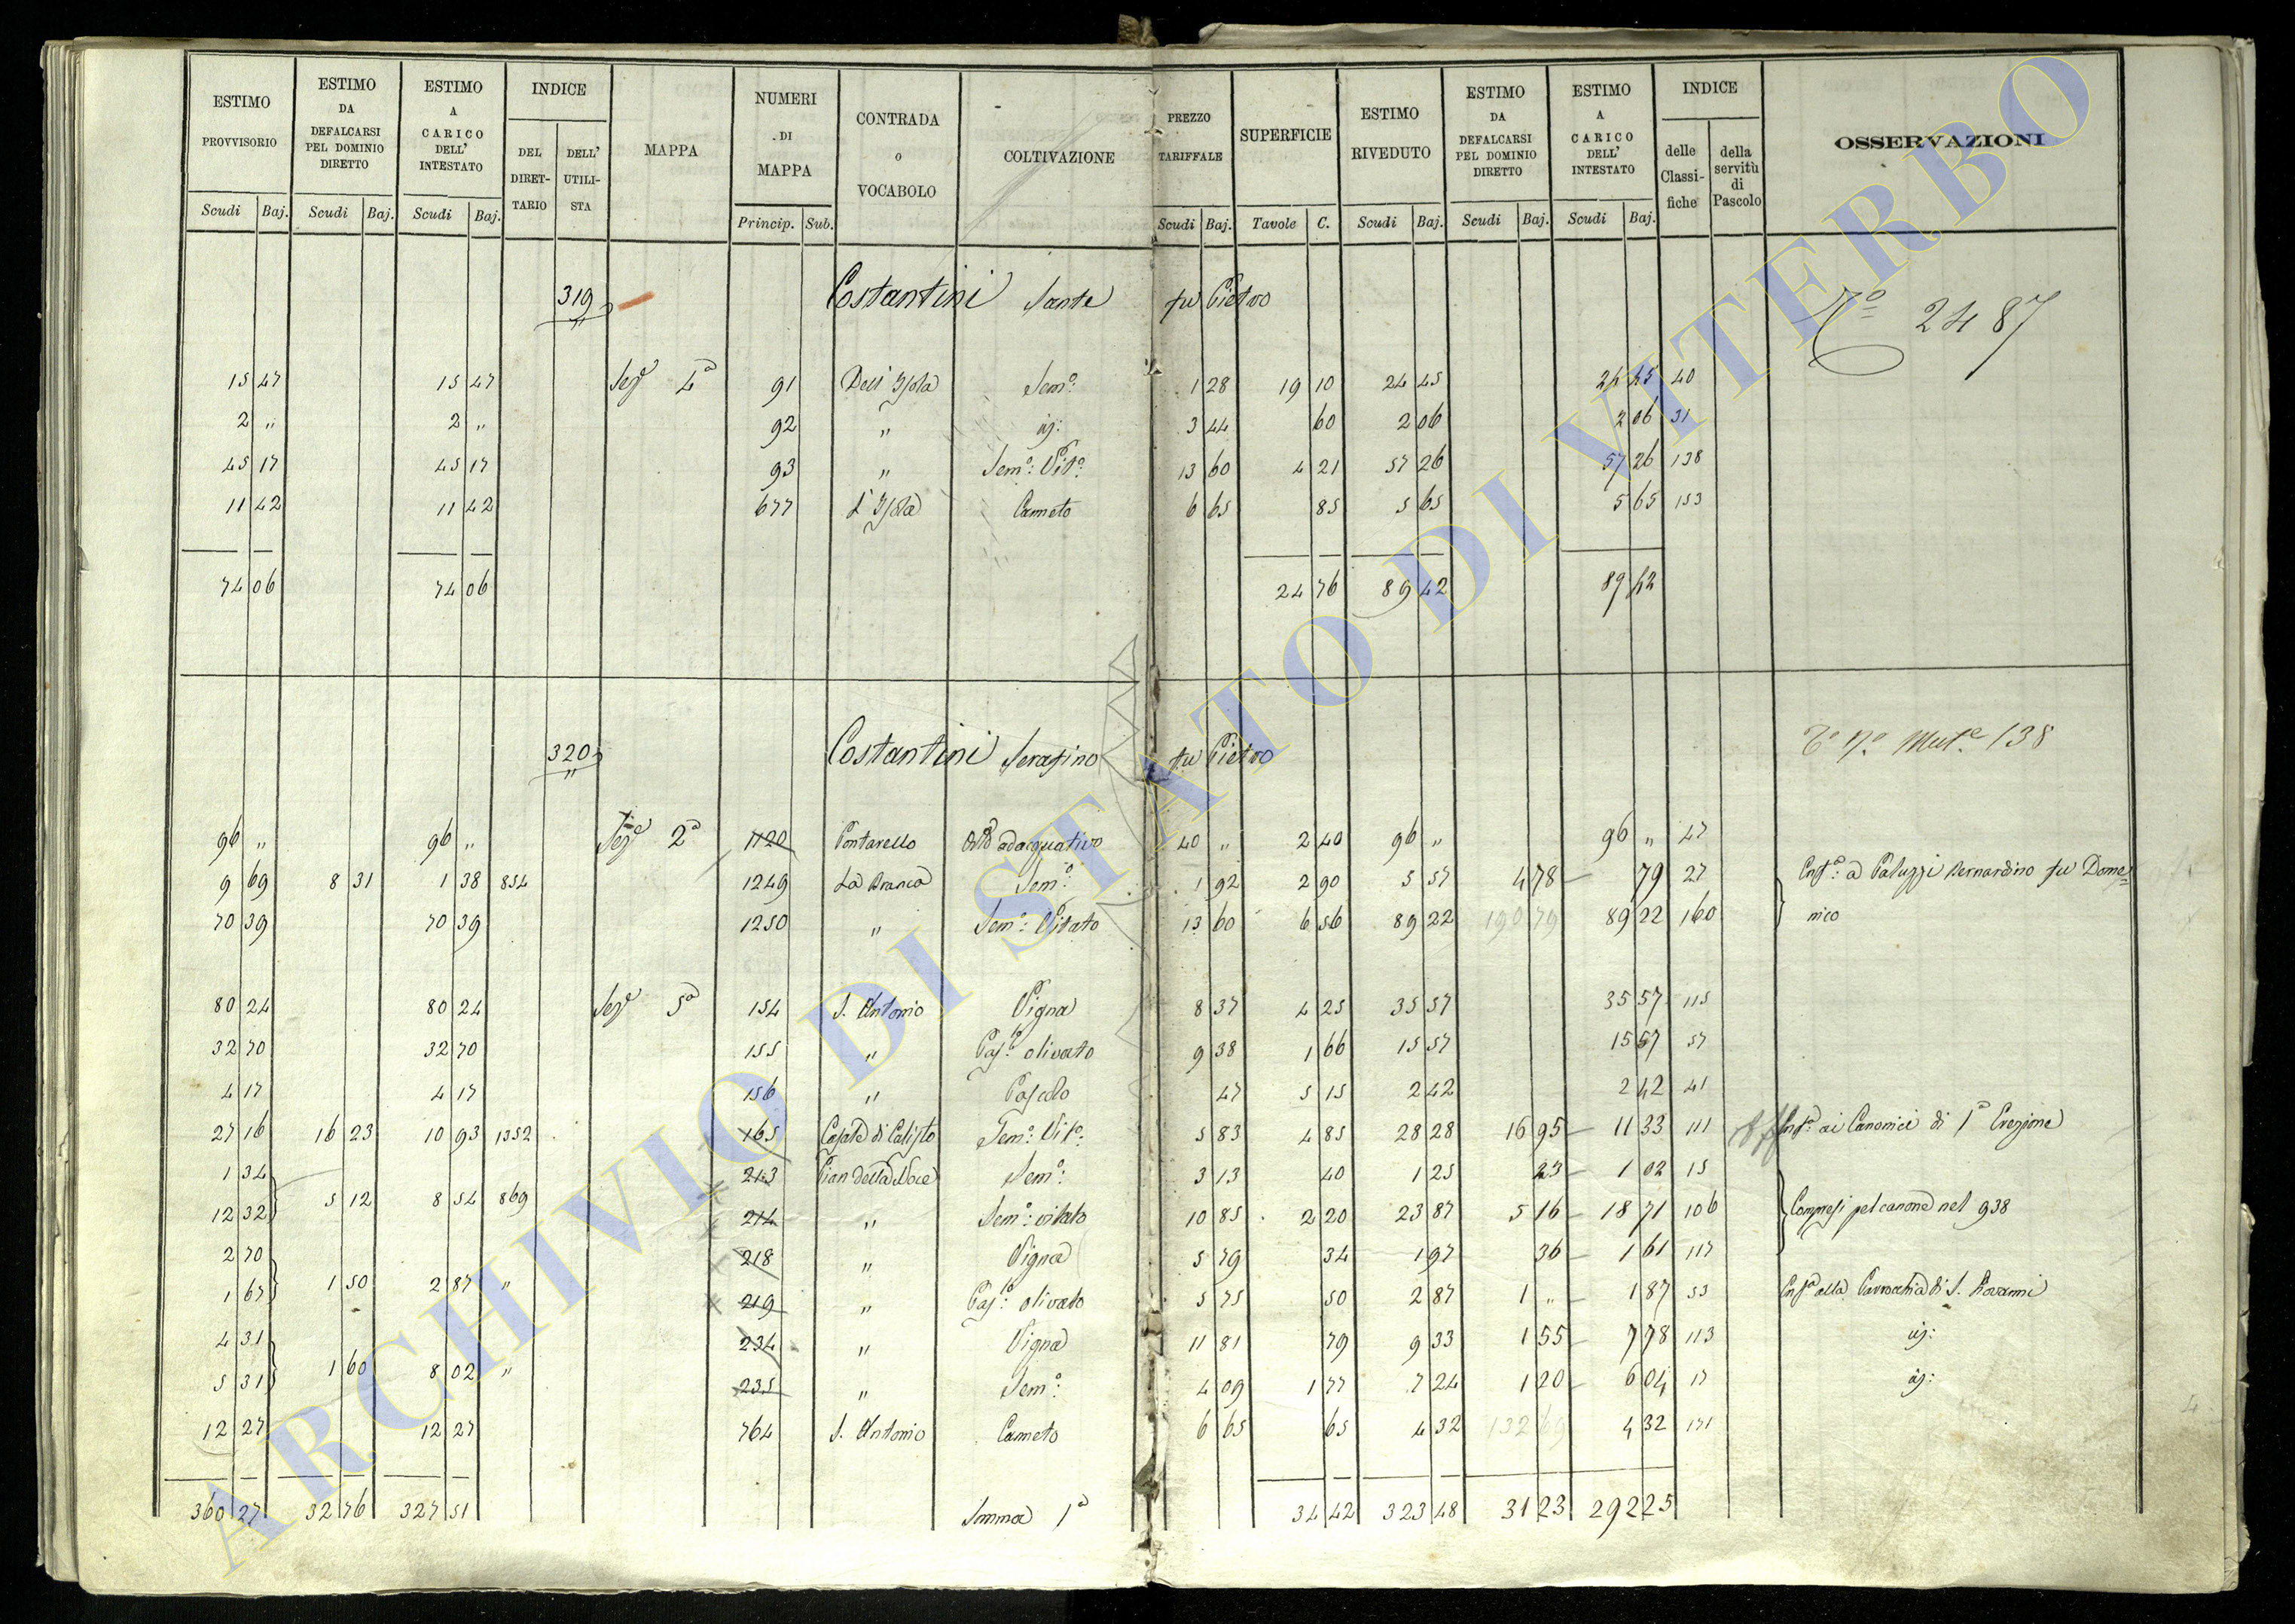 ESTIMO PROVVISORIO Scudi Baj. ESTIMO DA DEFALCARSI PEL DOMINIO DIRETTO Scudi Baj. ESTIMO A CARICO DELL' INTESTATO Scudi Baj. INDICE DEL DIRET-TARIO DELL' UTILI-STA MAPPA NUMERI DI MAPPA Princip. Sub. CONTRADA o VOCABOLO COLTIVAZIONE PREZZO TARIFFALE Scudi Baj. SUPERFICIE Tavole C. ESTIMO RIVEDUTO Scudi Baj. ESTIMO DA DEFALCARSI PEL DOMINIO DIRETTO Scudi Baj. ESTIMO A CARICO DELL' INTESTATO Scudi Baj. INDICE delle Classi-fiche della servitù di Pascolo OSSERVAZIONI
319 Costantini Sante fu Pietro Nº 2487
15 47 15 47 Sezе 4ª 91 Dell' Isola Semº: 1 28 19 10 24 45 24 45 40
2 " 2 " 92 " id: 3 44 60 2 06 2 06 31
45 17 45 17 93 " Semº: Vitº: 13 60 4 21 57 26 57 26 138
11 42 11 42 677 L'Isola Canneto 6 65 85 5 65 5 65 153
74 06 74 06 24 76 89 42 89 42
320 Costantini Serafino fu Pietro Mute 138
96 " 96 " Seze 2ª 1120 Pontarello Orto adacquativo 40 " 2 40 96 " 96 " 47
9 69 8 31 1 38 834 1249 La Branca Semº: 1 92 2 90 5 57 4 78 79 27 Enfª: a Paluzzi Bernardino fu Dome=
70 39 70 39 1250 " Semº: Vitato 13 60 6 56 89 22 190 79 89 22 160 nico
80 24 80 24 Seze 5ª 154 S. Antonio Vigna 8 37 4 25 35 57 35 57 115
32 70 32 70 155 " Pasº: olivato 9 38 1 66 15 57 15 57 57
4 17 4 17 156 " Pascolo 47 5 15 2 42 2 42 41
27 16 16 23 10 93 1352 165 Casale di Calisto Semº: Vitº: 5 83 4 85 28 28 16 95 11 33 111 Enfª ai Canonici di 1ª Erezione
1 34 213 Pian della Noce Semº: 3 13 40 1 25 23 1 02 15
12 32 5 12 8 54 869 214 " Semº: vitato 10 85 2 20 23 87 5 16 18 71 106 Compresi pel canone nel 938
2 70 218 " Vigna 5 79 34 1 97 36 1 61 117
1 67 1 50 2 87 " 219 " Pasº: olivato 5 75 50 2 87 1 " 1 87 53 Enfª alla Parrocchia di S. Giovanni
4 31 234 " Vigna 11 81 79 9 33 1 55 7 78 113 id:
5 31 1 60 8 02 " 235 " Semº: 4 09 1 77 7 24 1 20 6 04 17 id:
12 27 12 27 764 S. Antonio Canneto 6 65 65 4 32 132 69 4 32 171
360 27 32 76 327 51 Somma 1ª 34 42 323 48 31 23 292 25
ARCHIVIO DI STATO DI VITERBO